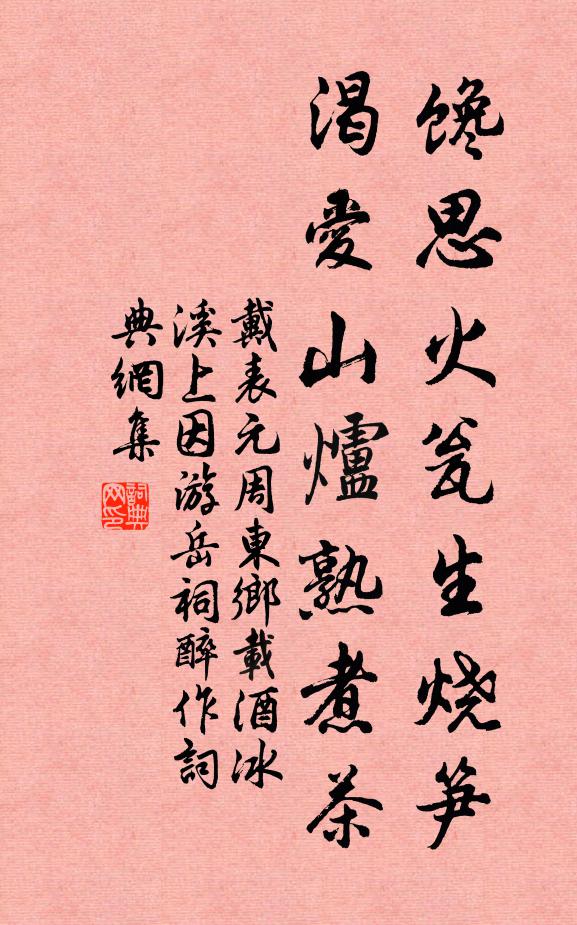 馋思火瓮生烧笋
渴愛山爐熟煮茶
戴表元周東鄉載酒冰
溪上因游岳祠醉作詞
典網集
詞典网印